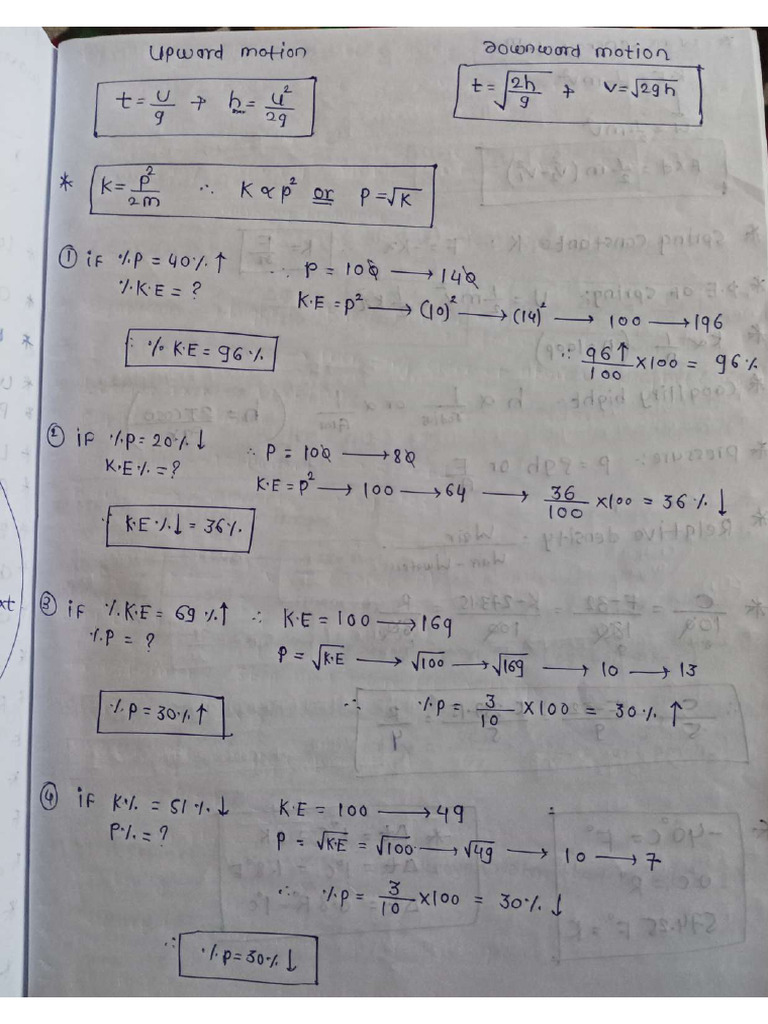 Upward motion
Downward motion
t = u/g → h = u²/2g
t = √(2h/g) → v = √2gh
* K = P²/2m ∴ K ∝ P² or P = √K
① if %P = 40% ↑ ∴ P = 100 → 140
%K.E = ? K.E = P² → (10)² → (14)² → 100 → 196
∴ % K.E = 96% ∴ 96↑/100 × 100 = 96%
② if %P = 20% ↓ ∴ P = 100 → 80
K.E% = ? K.E = P² → 100 → 64 → 36/100 × 100 = 36% ↓
∴ K.E %↓ = 36%
③ if %K.E = 69 % ↑ ∴ K.E = 100 → 169
%P = ? P = √K.E → √100 → √169 → 10 → 13
%P = 30% ↑ ∴ %P = 3/10 × 100 = 30% ↑
④ if K% = 51% ↓ K.E = 100 → 49
P% = ? P = √K.E = √100 → √49 → 10 → 7
∴ %P = 3/10 × 100 = 30% ↓
∴ %P = 30% ↓
xt